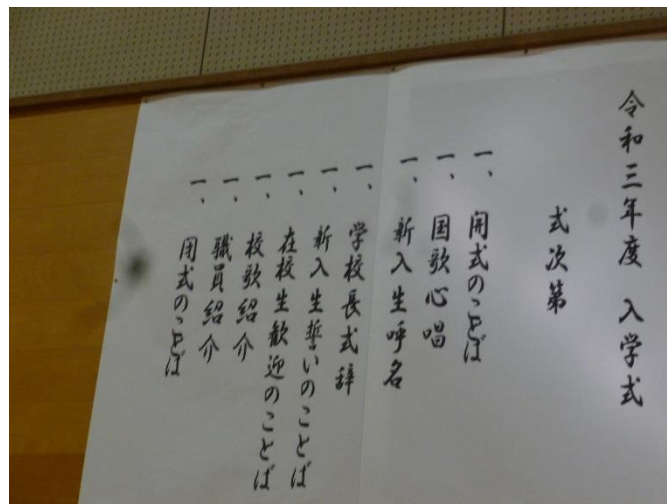 令和三年度 入学式
式次第
一、開式のことば
一、国歌心唱
一、新入生呼名
一、学校長式辞
一、新入生誓いのことば
一、在校生歓迎のことば
一、校歌紹介
一、職員紹介
一、閉式のことば